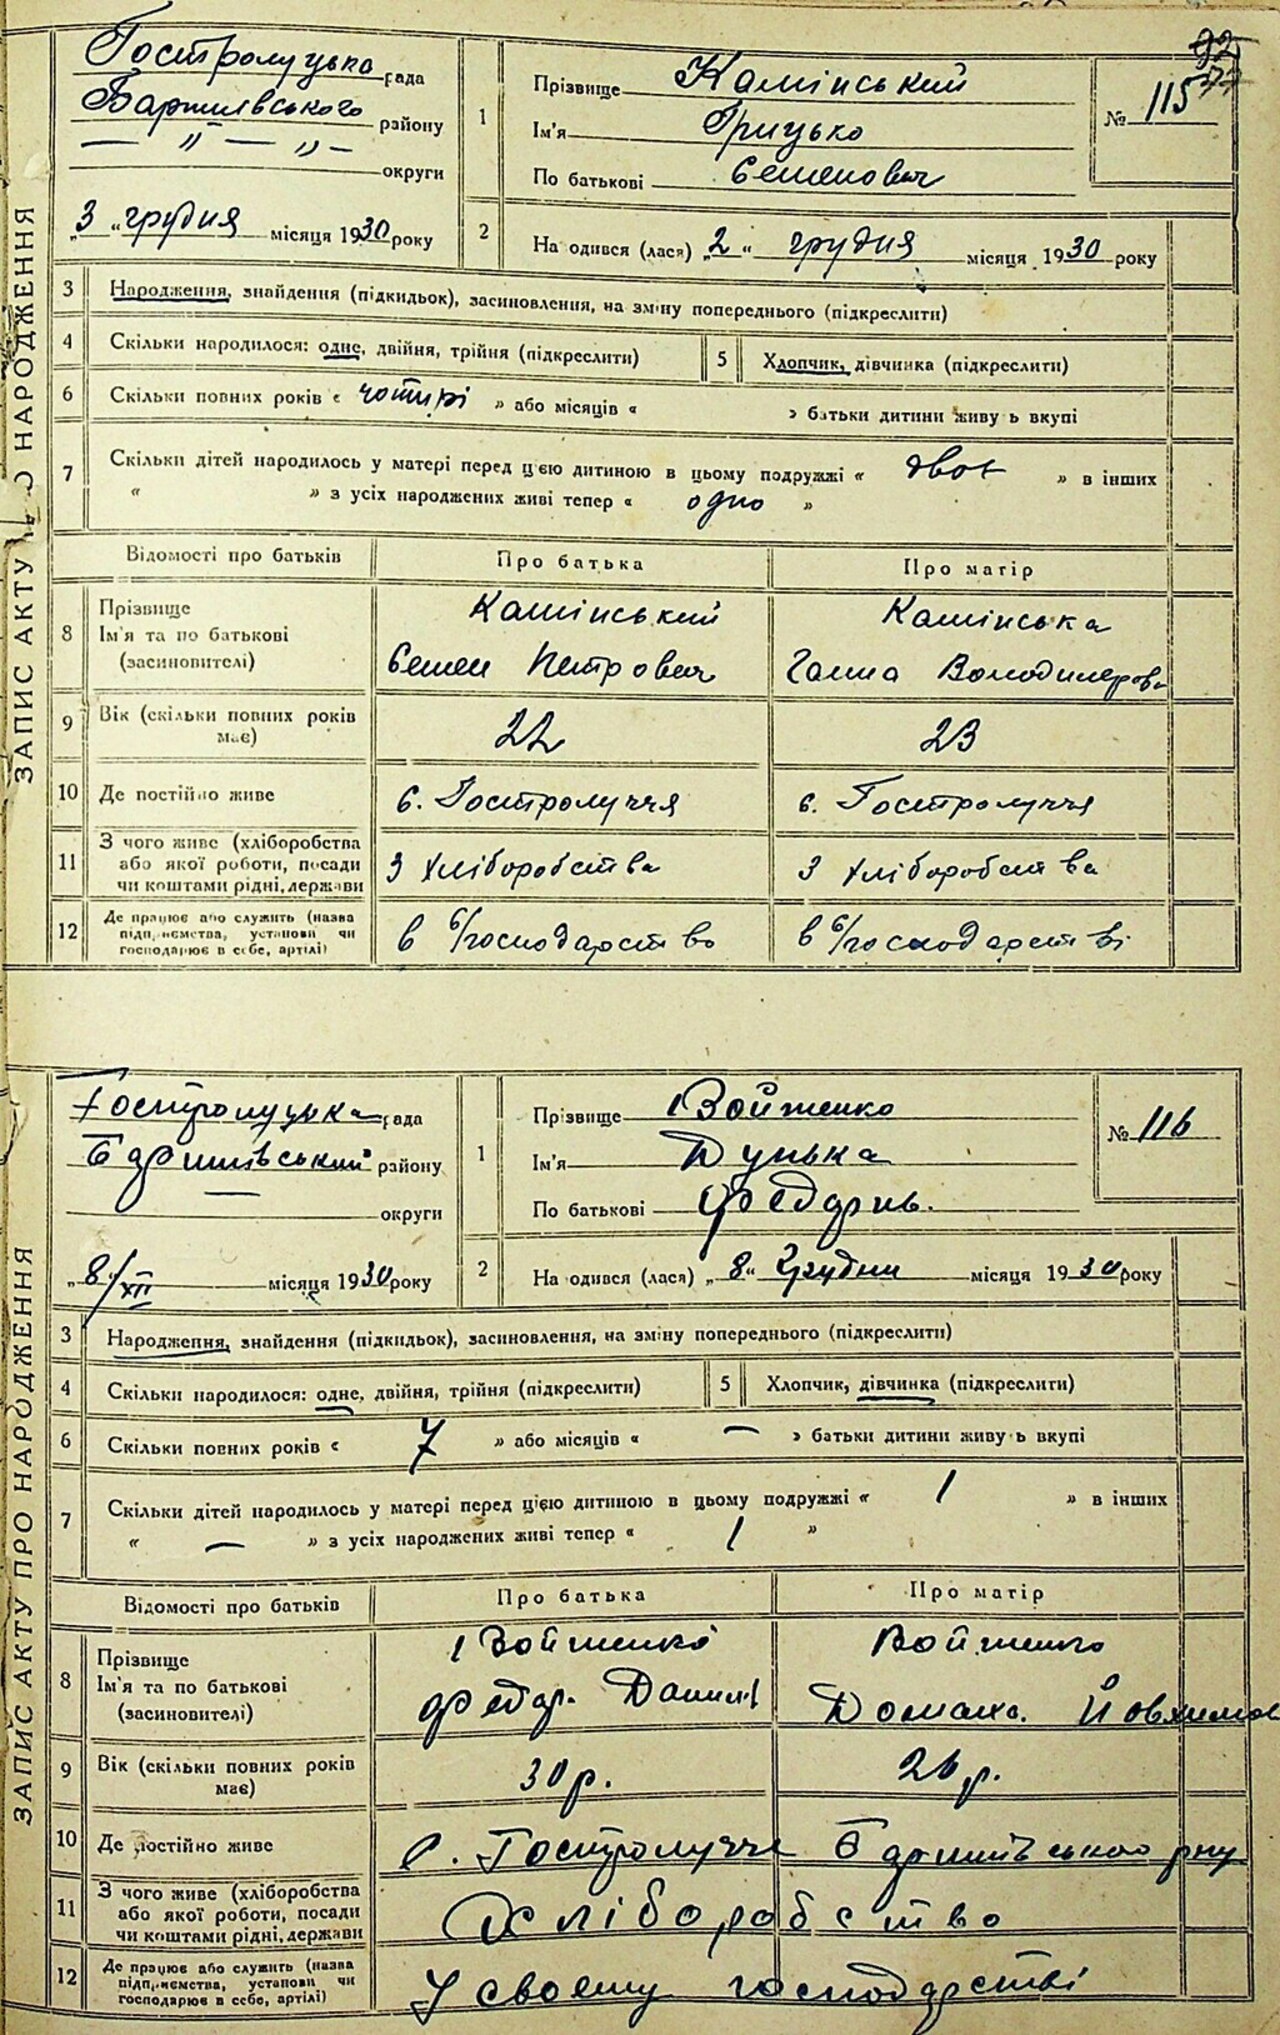 92
77
Гостролуцька рада
Баришівського району
— " — " —
округи
„3" грудня місяця 1930 року
1
Прізвище Камінський
Ім'я Грицько
По батькові Семенович
№ 115
2
На одився (лася) „2" грудня місяця 1930 року
ЗАПИС АКТУ О НАРОДЖЕННЯ
3 Народження, знайдення (підкидьок), засиновлення, на зміну попереднього (підкреслити)
4 Скільки народилося: одне, двійня, трійня (підкреслити) 5 Хлопчик, дівчинка (підкреслити)
6 Скільки повних років « чотирі » або місяців « » батьки дитини живу ь вкупі
7 Скільки дітей народилось у матері перед цією дитиною в цьому подружжі « двоє » в інших
« » з усіх народжених живі тепер « одно »
Відомості про батьків Про батька Про матір
8 Прізвище Ім'я та по батькові (засиновителі)
Камінський Камінська
Семен Петрович Ганна Володимерова
9 Вік (скільки повних років має) 22 23
10 Де постійно живе с. Гостролуччя с. Гостролуччя
11 З чого живе (хліборобства
або якої роботи, посади
чи коштами рідні, держави
З хліборобства З хліборобства
12 Де працює або служить (назва
підп,иємства, установи чи
господарює в себе, артілі)
в с/господарство в с/господарстві
Гостролуцька рада
Баришівський району
—
округи
„8/XII місяця 1930 року
1
Прізвище Войтенко
Ім'я Дунька
По батькові Федорив.
№ 116
2
На одився (лася) „8" Грудни місяця 1930 року
ЗАПИС АКТУ ПРО НАРОДЖЕННЯ
3 Народження, знайдення (підкидьок), засиновлення, на зміну попереднього (підкреслити)
4 Скільки народилося: одне, двійня, трійня (підкреслити) 5 Хлопчик, дівчинка (підкреслити)
6 Скільки повних років « 7 » або місяців « — » батьки дитини живу ь вкупі
7 Скільки дітей народилось у матері перед цією дитиною в цьому подружжі « 1 » в інших
« — » з усіх народжених живі тепер « 1 »
Відомості про батьків Про батька Про матір
8 Прізвище Ім'я та по батькові (засиновителі)
Войтенко Войтенко
Федор. Данил Домаха. Йовхимов
9 Вік (скільки повних років має) 30 р. 26 р.
10 Де постійно живе с. Гостролуччє Баришівського рну
11 З чого живе (хліборобства
або якої роботи, посади
чи коштами рідні, держави
Хліборобство
12 Де працює або служить (назва
підп,иємства, установи чи
господарює в себе, артілі)
У своєму господарстві